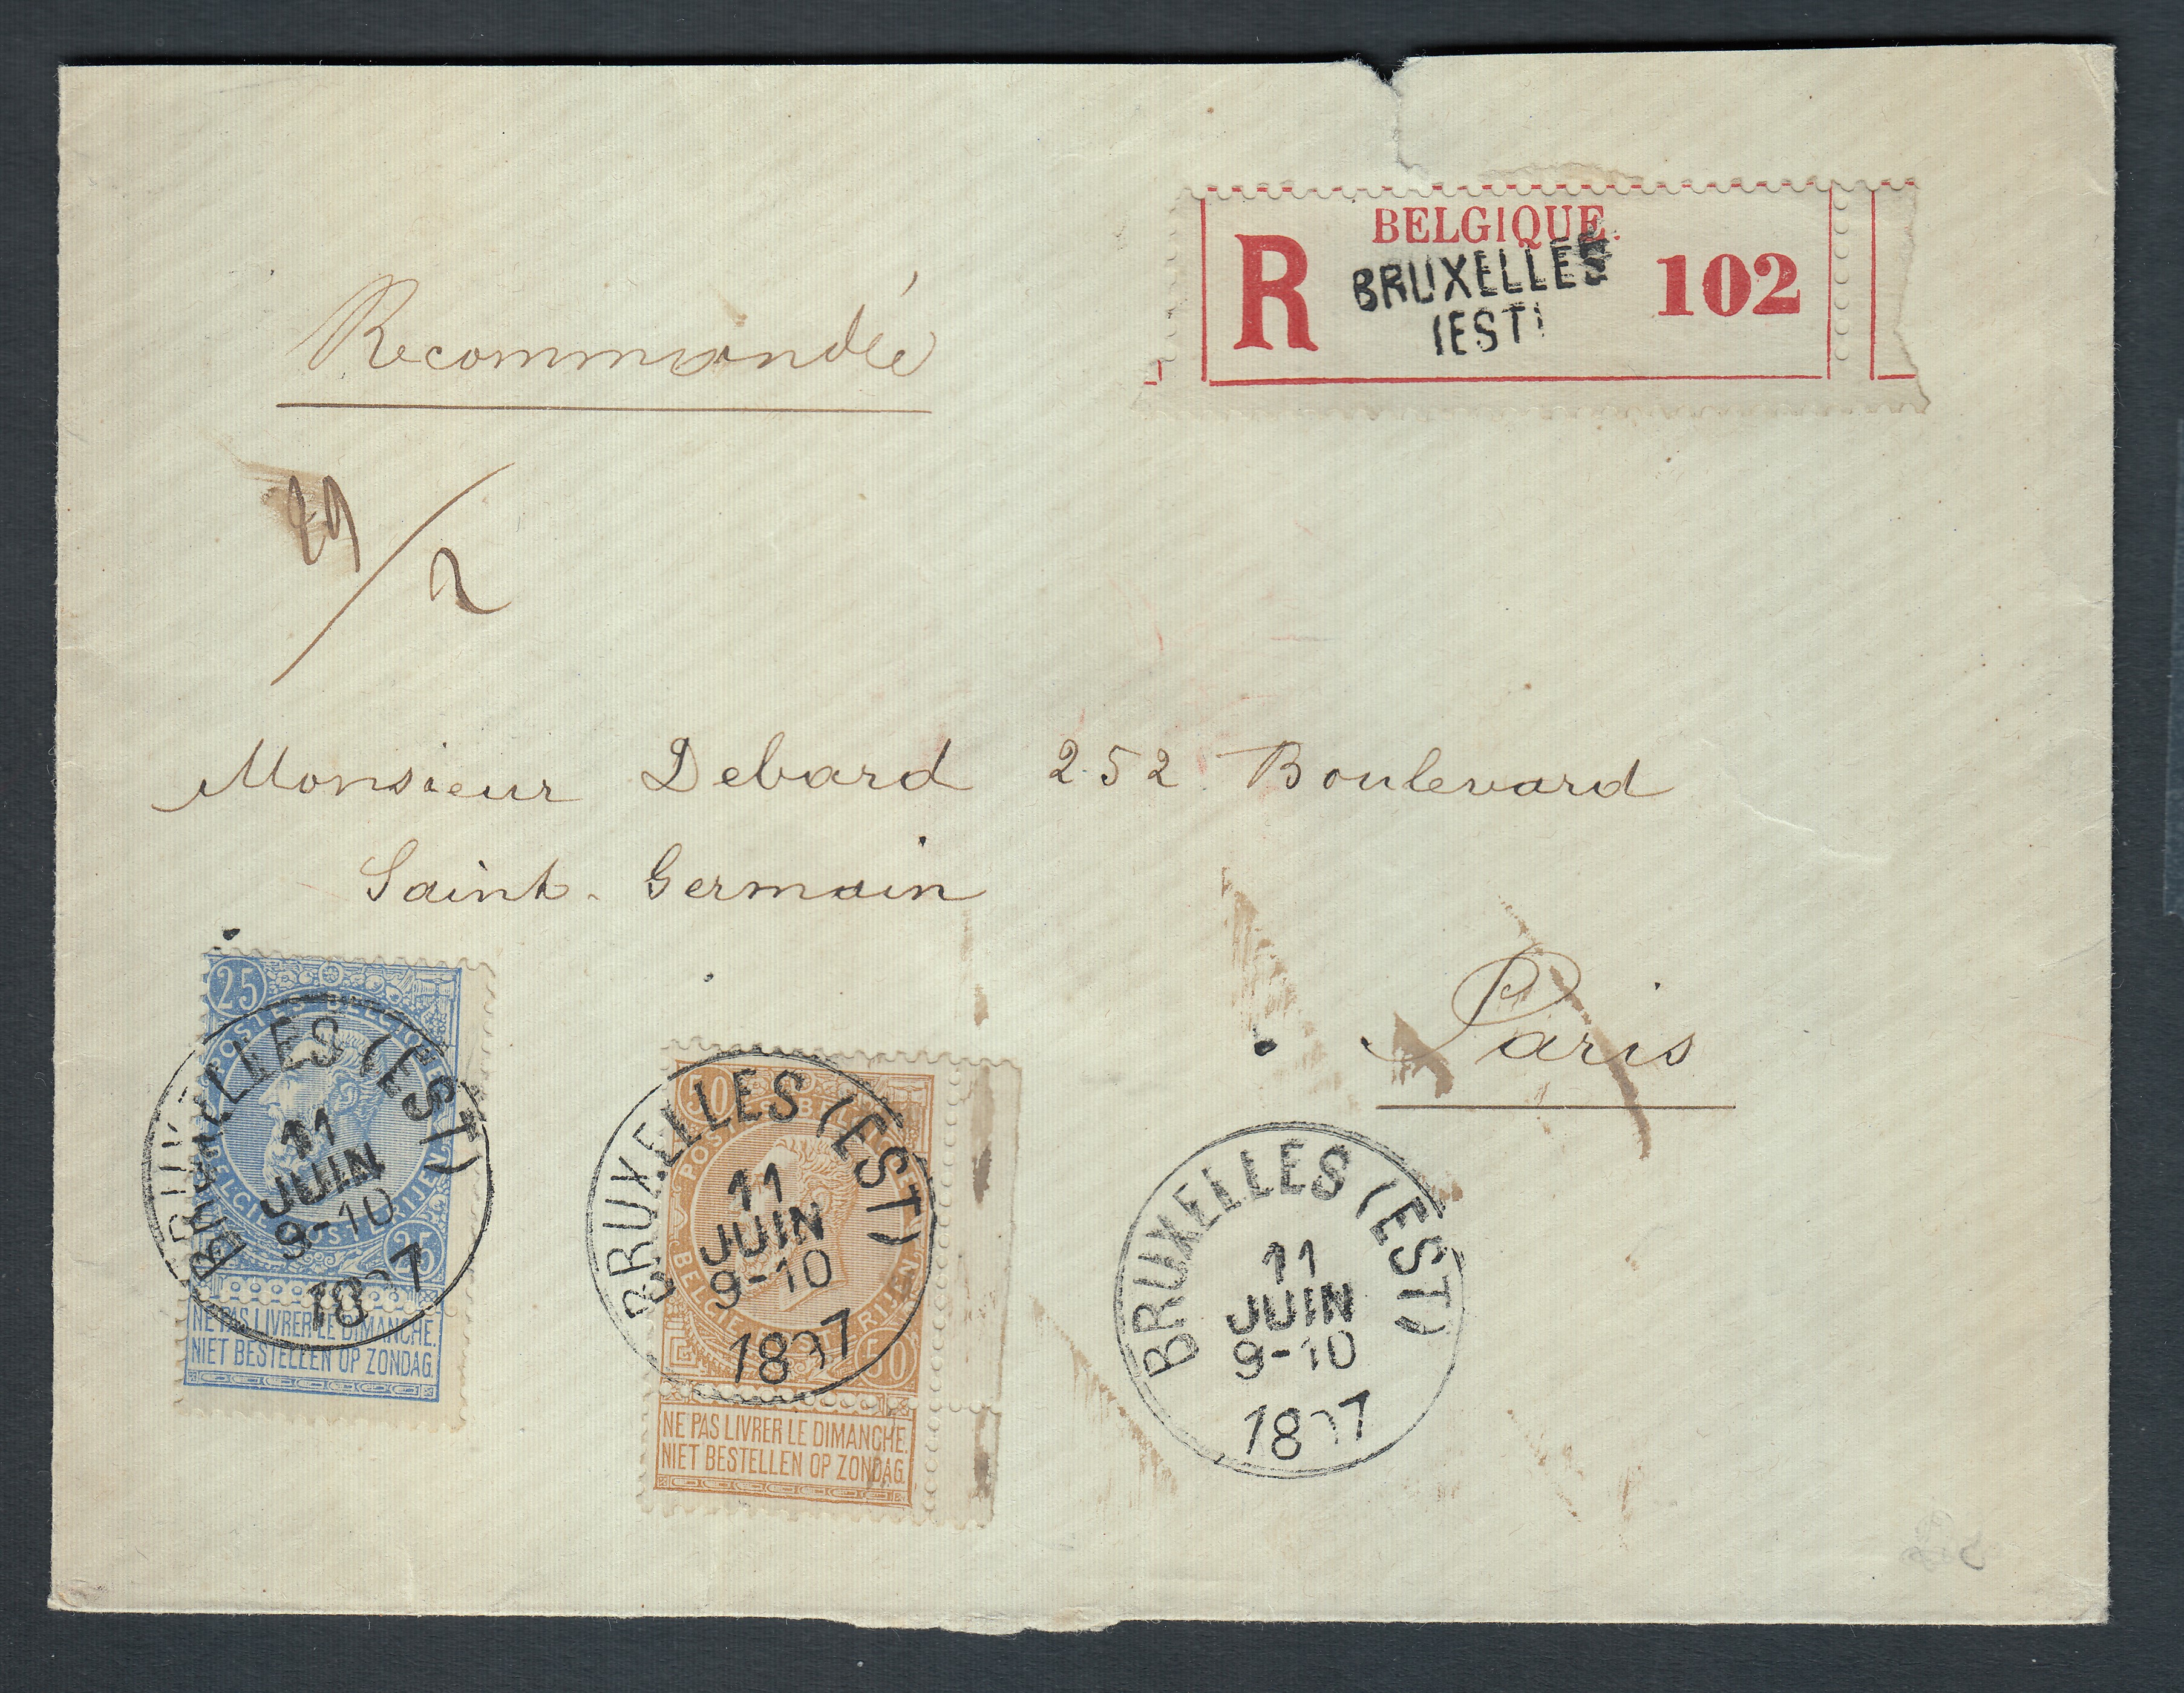 BELGIQUE.
R
BRUXELLES
(EST)
102
Recommandée
29
/
2
Monsieur Debard 252 Boulevard
Saint-Germain
Paris
25
POSTES BELGIQUE
25
NE PAS LIVRER LE DIMANCHE.
NIET BESTELLEN OP ZONDAG.
BRUXELLES (EST)
11
JUIN
9-10
1897
50
50
NE PAS LIVRER LE DIMANCHE.
NIET BESTELLEN OP ZONDAG.
BRUXELLES (EST)
11
JUIN
9-10
1897
BRUXELLES (EST)
11
JUIN
9-10
1897